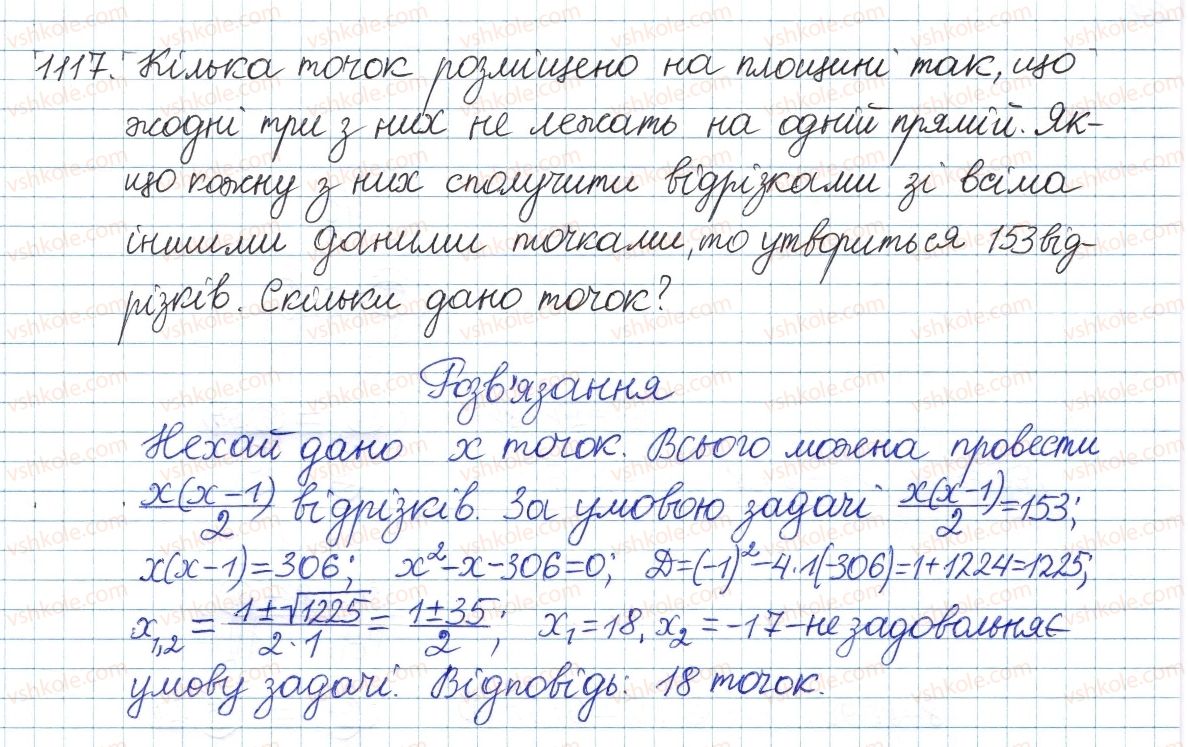 1117. Кілька точок розміщено на площині так, що
жодні три з них не лежать на одній прямій. Як-
що кожну з них сполучити відрізками зі всіма
іншими даними точками, то утвориться 153 від-
різків. Скільки дано точок?
Розв'язання
Нехай дано x точок. Всього можна провести
x(x-1)/2 відрізків. За умовою задачі x(x-1)/2 = 153;
x(x-1)=306; x²-x-306=0; D=(-1)²-4·1(-306)=1+1224=1225;
x₁,₂ = (1±√1225)/(2·1) = (1±35)/2; x₁=18, x₂=-17-не задовольняє
умову задачі. Відповідь: 18 точок.